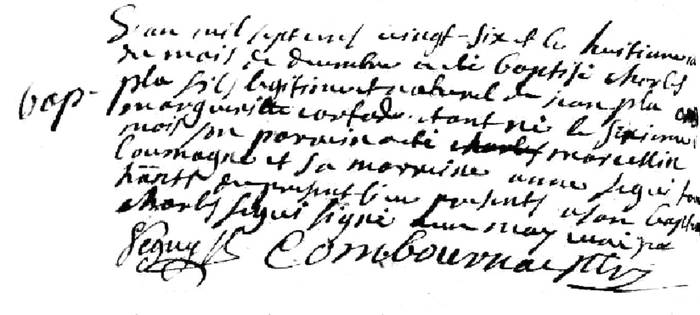 L'an mil sept cens vingt-six et le huitieme
du mois de decembre a été baptisé charles
pla fils legitime et naturel de jean pla et
bap- marguerite être né le sixieme
mois son parrain a été charles marcellin
loumagne et sa marraine anne segui
habts du present lieu presents a son bapt
charles segui signé avec moy
Seguy Combournac